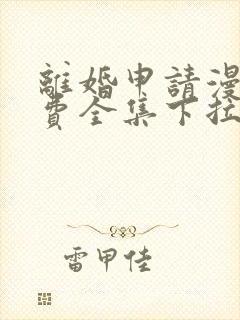 離婚申請漫
費全集下拉
雷甲佳